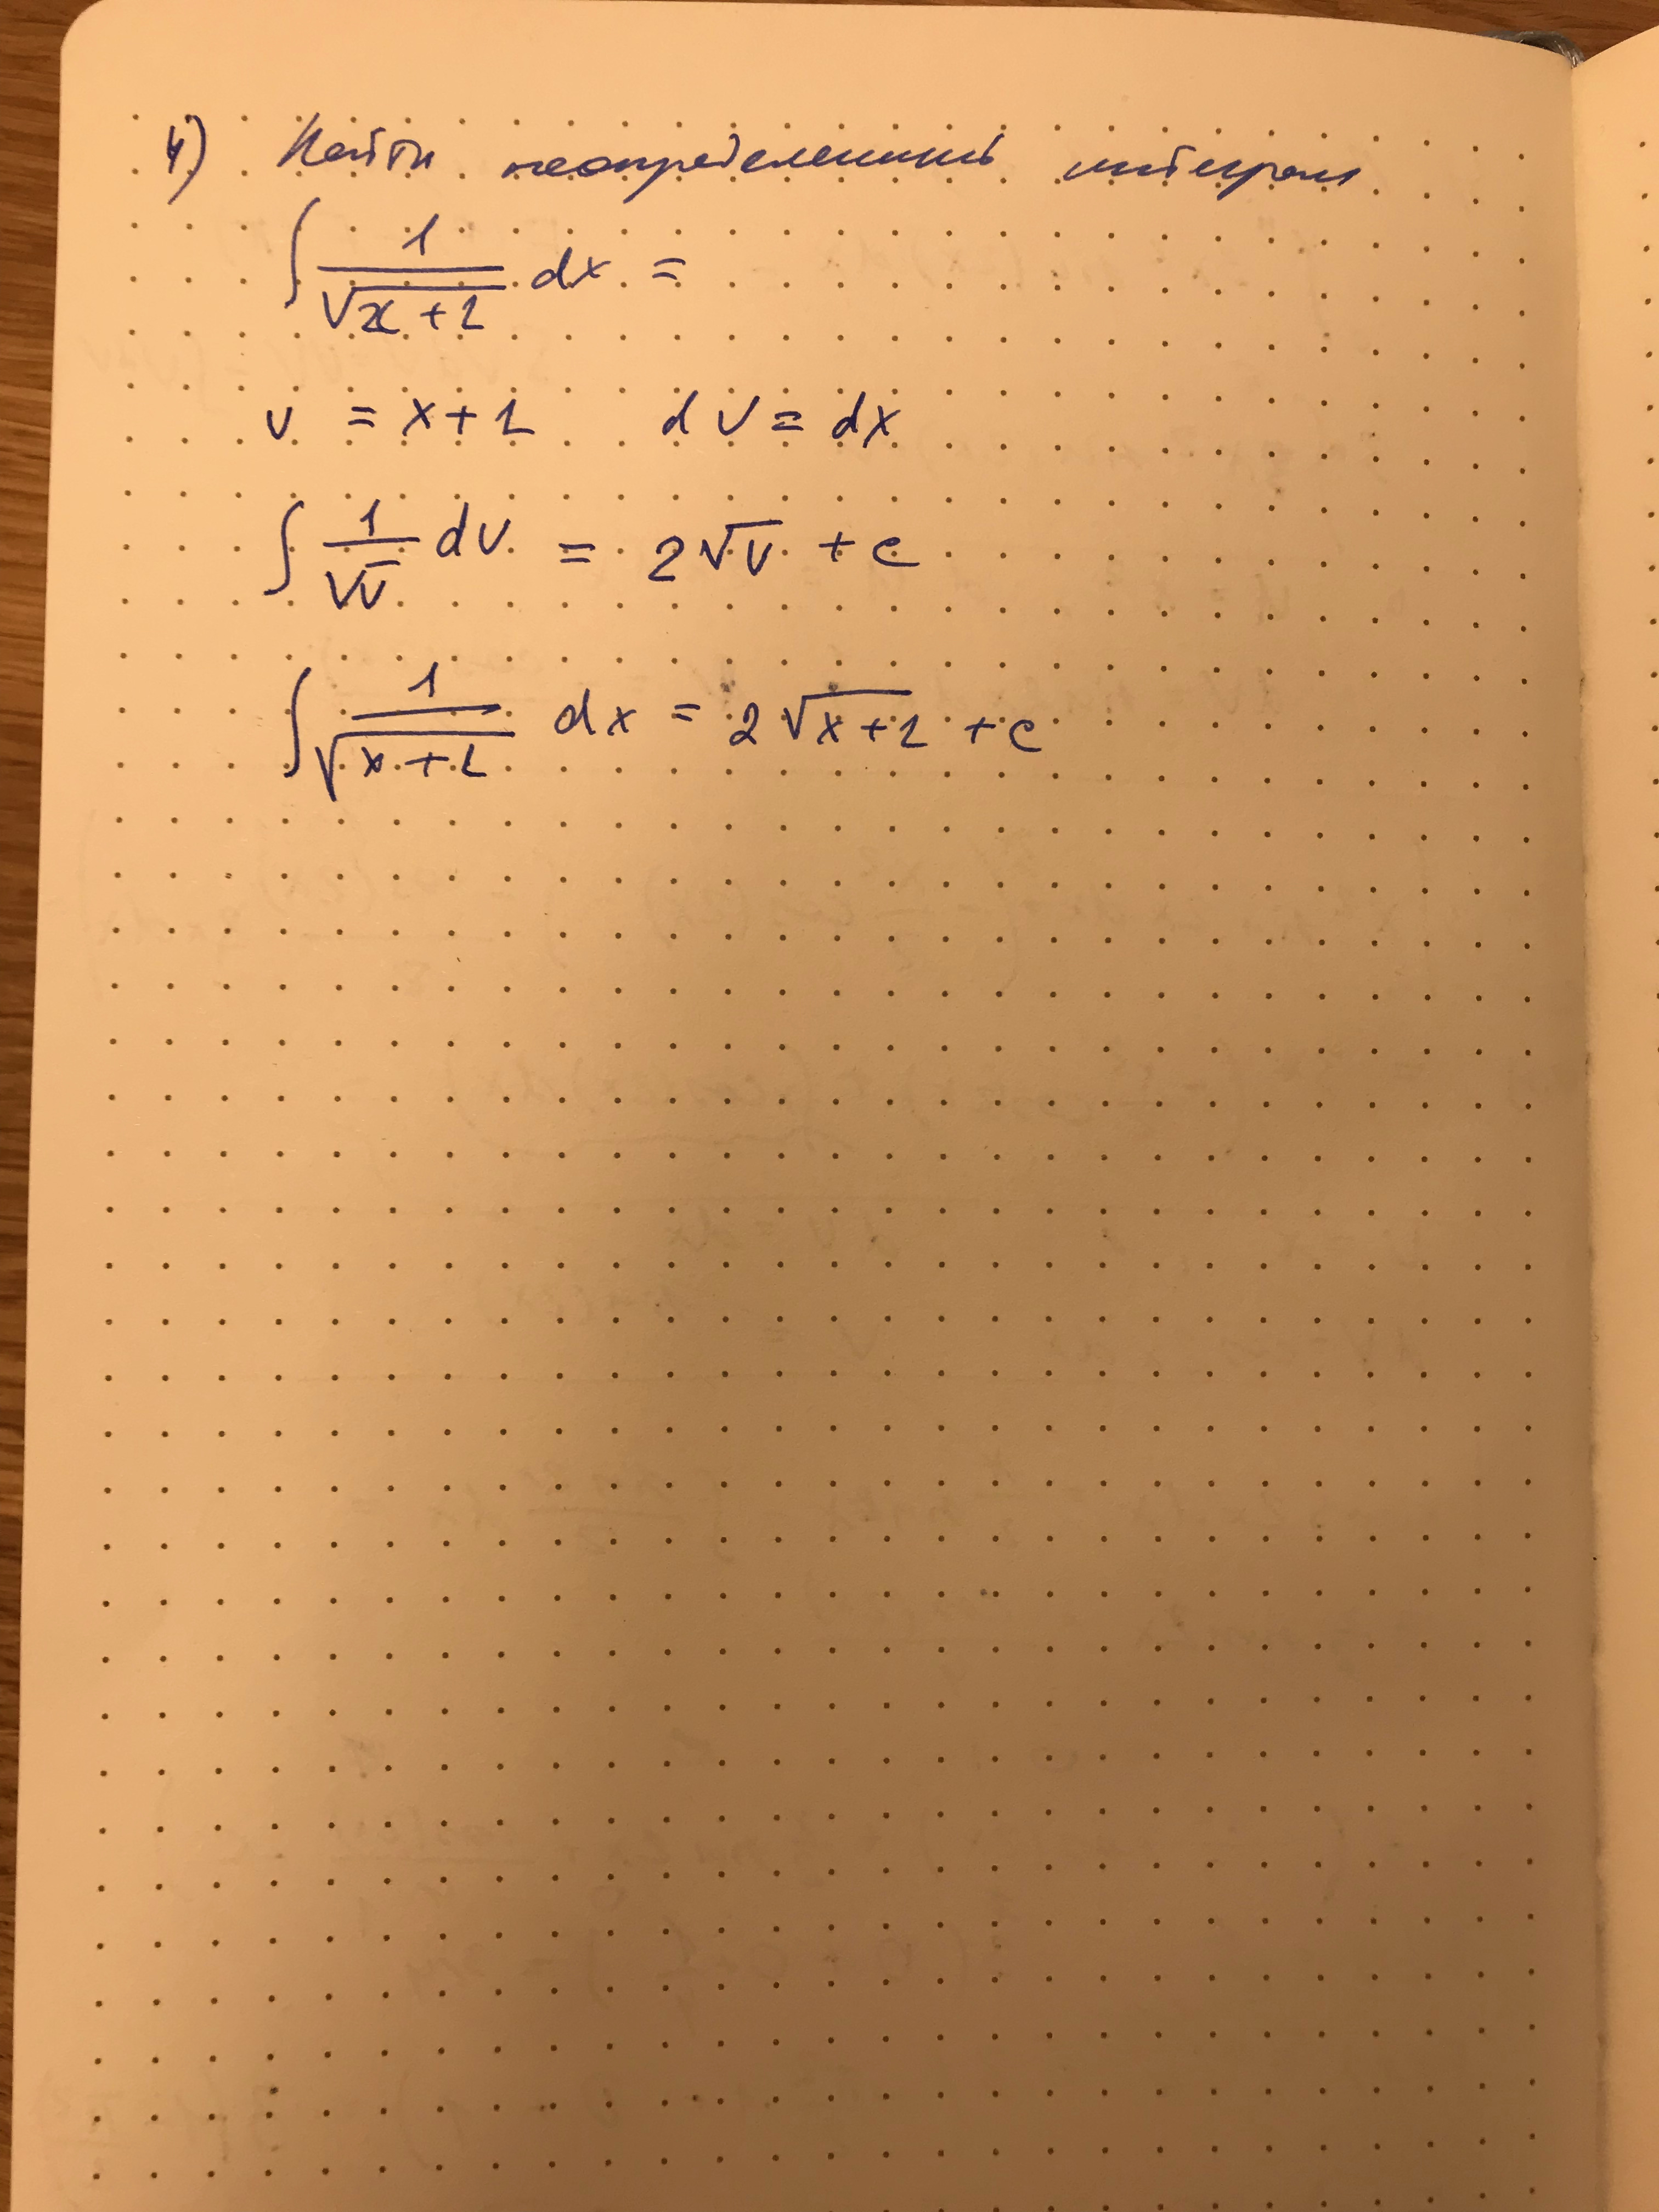 4) Найти неопределенный интеграл
∫ 1/√(x+1) dx =
v = x+1 dv = dx
∫ 1/√v dv = 2√v + c
∫ 1/√(x+1) dx = 2√(x+1) + c